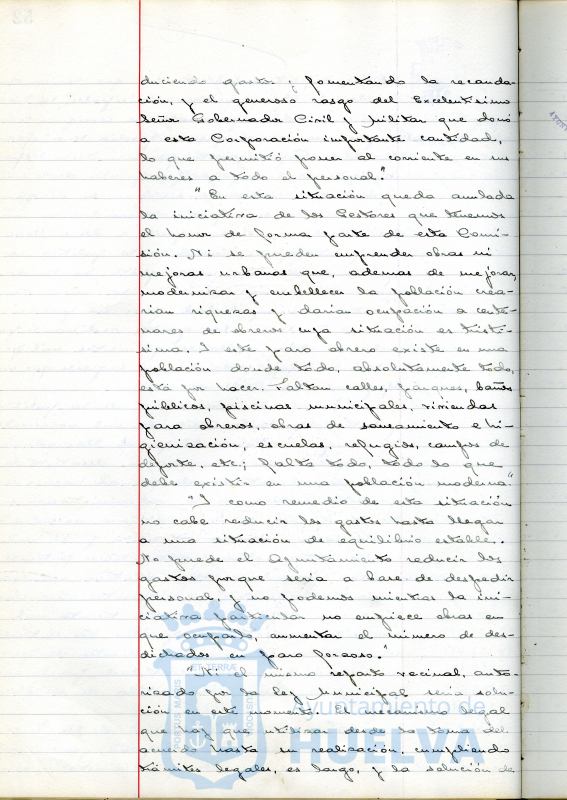 duciendo gastos; fomentando la recauda-
ción, y el generoso rasgo del Excelentísimo
Señor Gobernador Civil y Militar que donó
a esta Corporación importante cantidad,
lo que permitió poner al corriente en sus
haberes a todo el personal."
"En esta situación queda anulada
la iniciativa de los Gestores que tenemos
el honor de formar parte de esta Comi-
sión. Ni se pueden emprender obras ni
mejoras urbanas que, ademas de mejorar,
modernizar y embellecer la población crea-
rian riquezas y darian ocupación a cente-
nares de obreros cuya situación es tristí-
sima. I este paro obrero existe en una
población donde todo, absolutamente todo,
está por hacer. Faltan calles, parques, baños
públicos, piscinas municipales, viviendas
para obreros, obras de saneamiento e hi-
gienización, escuelas, refugios, campos de
deporte, etc; falta todo, todo lo que
debe existir en una población moderna."
"I como remedio de esta situación
no cabe reducir los gastos hasta llegar
a una situación de equilibrio estable.
No puede el Ayuntamiento reducir los
gastos porque seria a base de despedir
personal, y no podemos mientras la ini-
ciativa particular no empiece obras en
que ocuparlo, aumentar el número de des-
dichados en paro forzoso."
"Ni el mismo reparto vecinal, auto-
rizado por la ley Municipal seria solu-
ción en este momento. El mecanismo legal
que hay que utilizar desde la toma del
acuerdo hasta su realización, cumpliendo
trámites legales, es largo, y la solución de
Ayuntamiento de
HUELVA